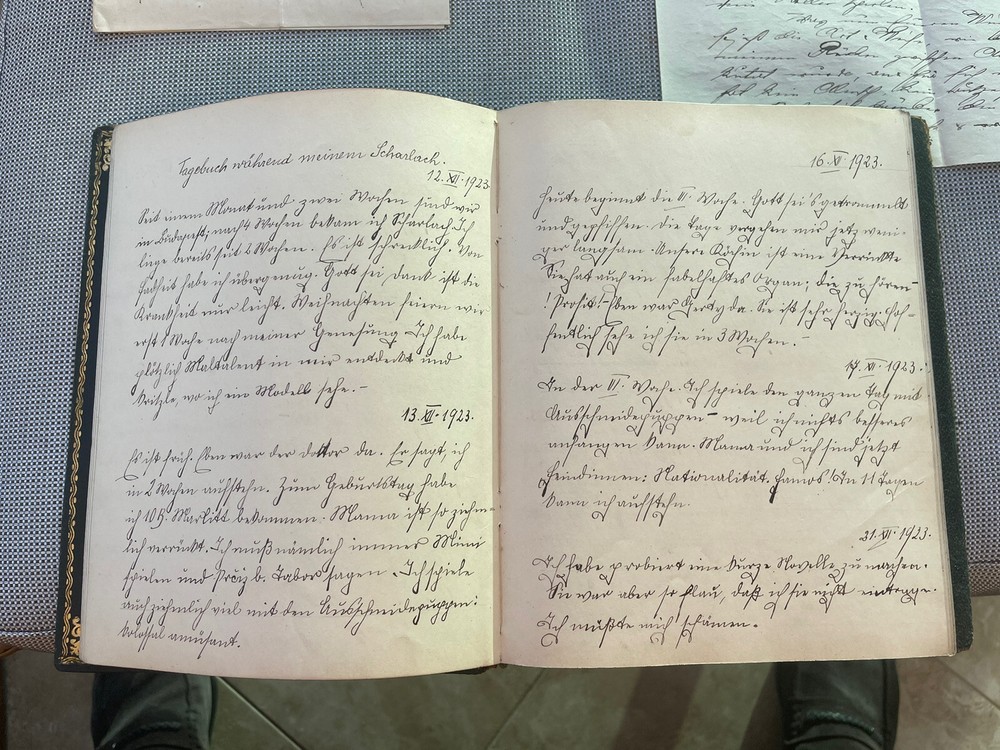 Tagebuch während meinem Scharlach.
12.XII.1923
Seit einem Monat und zwei Wochen sind wir
in Budapest; nach 4 Wochen bekam ich Scharlach. Ich
liege bereits seit 2 Wochen. Es ist schrecklich. Von
Fadheit habe ich übergenug. Gott sei Dank ist die
Krankheit nur leicht. Weihnachten feiern wir
erst 1 Woche nach meiner Genesung. Ich habe
plötzlich Maltalent in mir entdeckt und
kritzle, wo ich ein Modell sehe.-
13.XII.1923.
Es ist früh. Eben war der doktor da. Er sagt, ich
in 2 Wochen aufstehn. Zum Geburtstag habe
ich 10 Marlitt bekommen. Mama ist so ziem-
lich verrückt. Ich muß nämlich immer Mimi
spielen und Tabor sagen. Ich spiele
auch ziemlich viel mit den Ausschneidepuppen:
kolossal amüsant.
16.XI.1923.
Heute beginnt die II. Woche. Gott sei's getrommelt
und gepfiffen. Die Tage vergehen mir jetzt weni-
ger langsam. Unsere Köchin ist eine Verrückte
Sie hat auch ein fabelhaftes Organ; die zu hören-
! Prosit!- Eben war Gerty da. Sie ist sehr herzig. Hof-
fentlich sehe ich sie in 3 Wochen.-
17.XI.1923.
In der II. Woche. Ich spiele den ganzen Tag mit
Ausschneidepuppen- weil ich nichts besseres
anfangen kann. Mama und ich sind jetzt
Feindinnen: Nationalität. Famos! In 11 Tagen
kann ich aufstehn.
21.XI.1923.
Ich habe probiert eine kurze Novelle zu machen.
Sie war aber so flau, daß ich sie nicht eintrage.
Ich müßte mich schämen.-